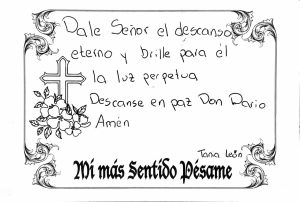 Dale Señor el descanso
eterno y brille para él
la luz perpetua
Descanse en paz Don Dario
Amén
Tania León
Mi más Sentido Pésame